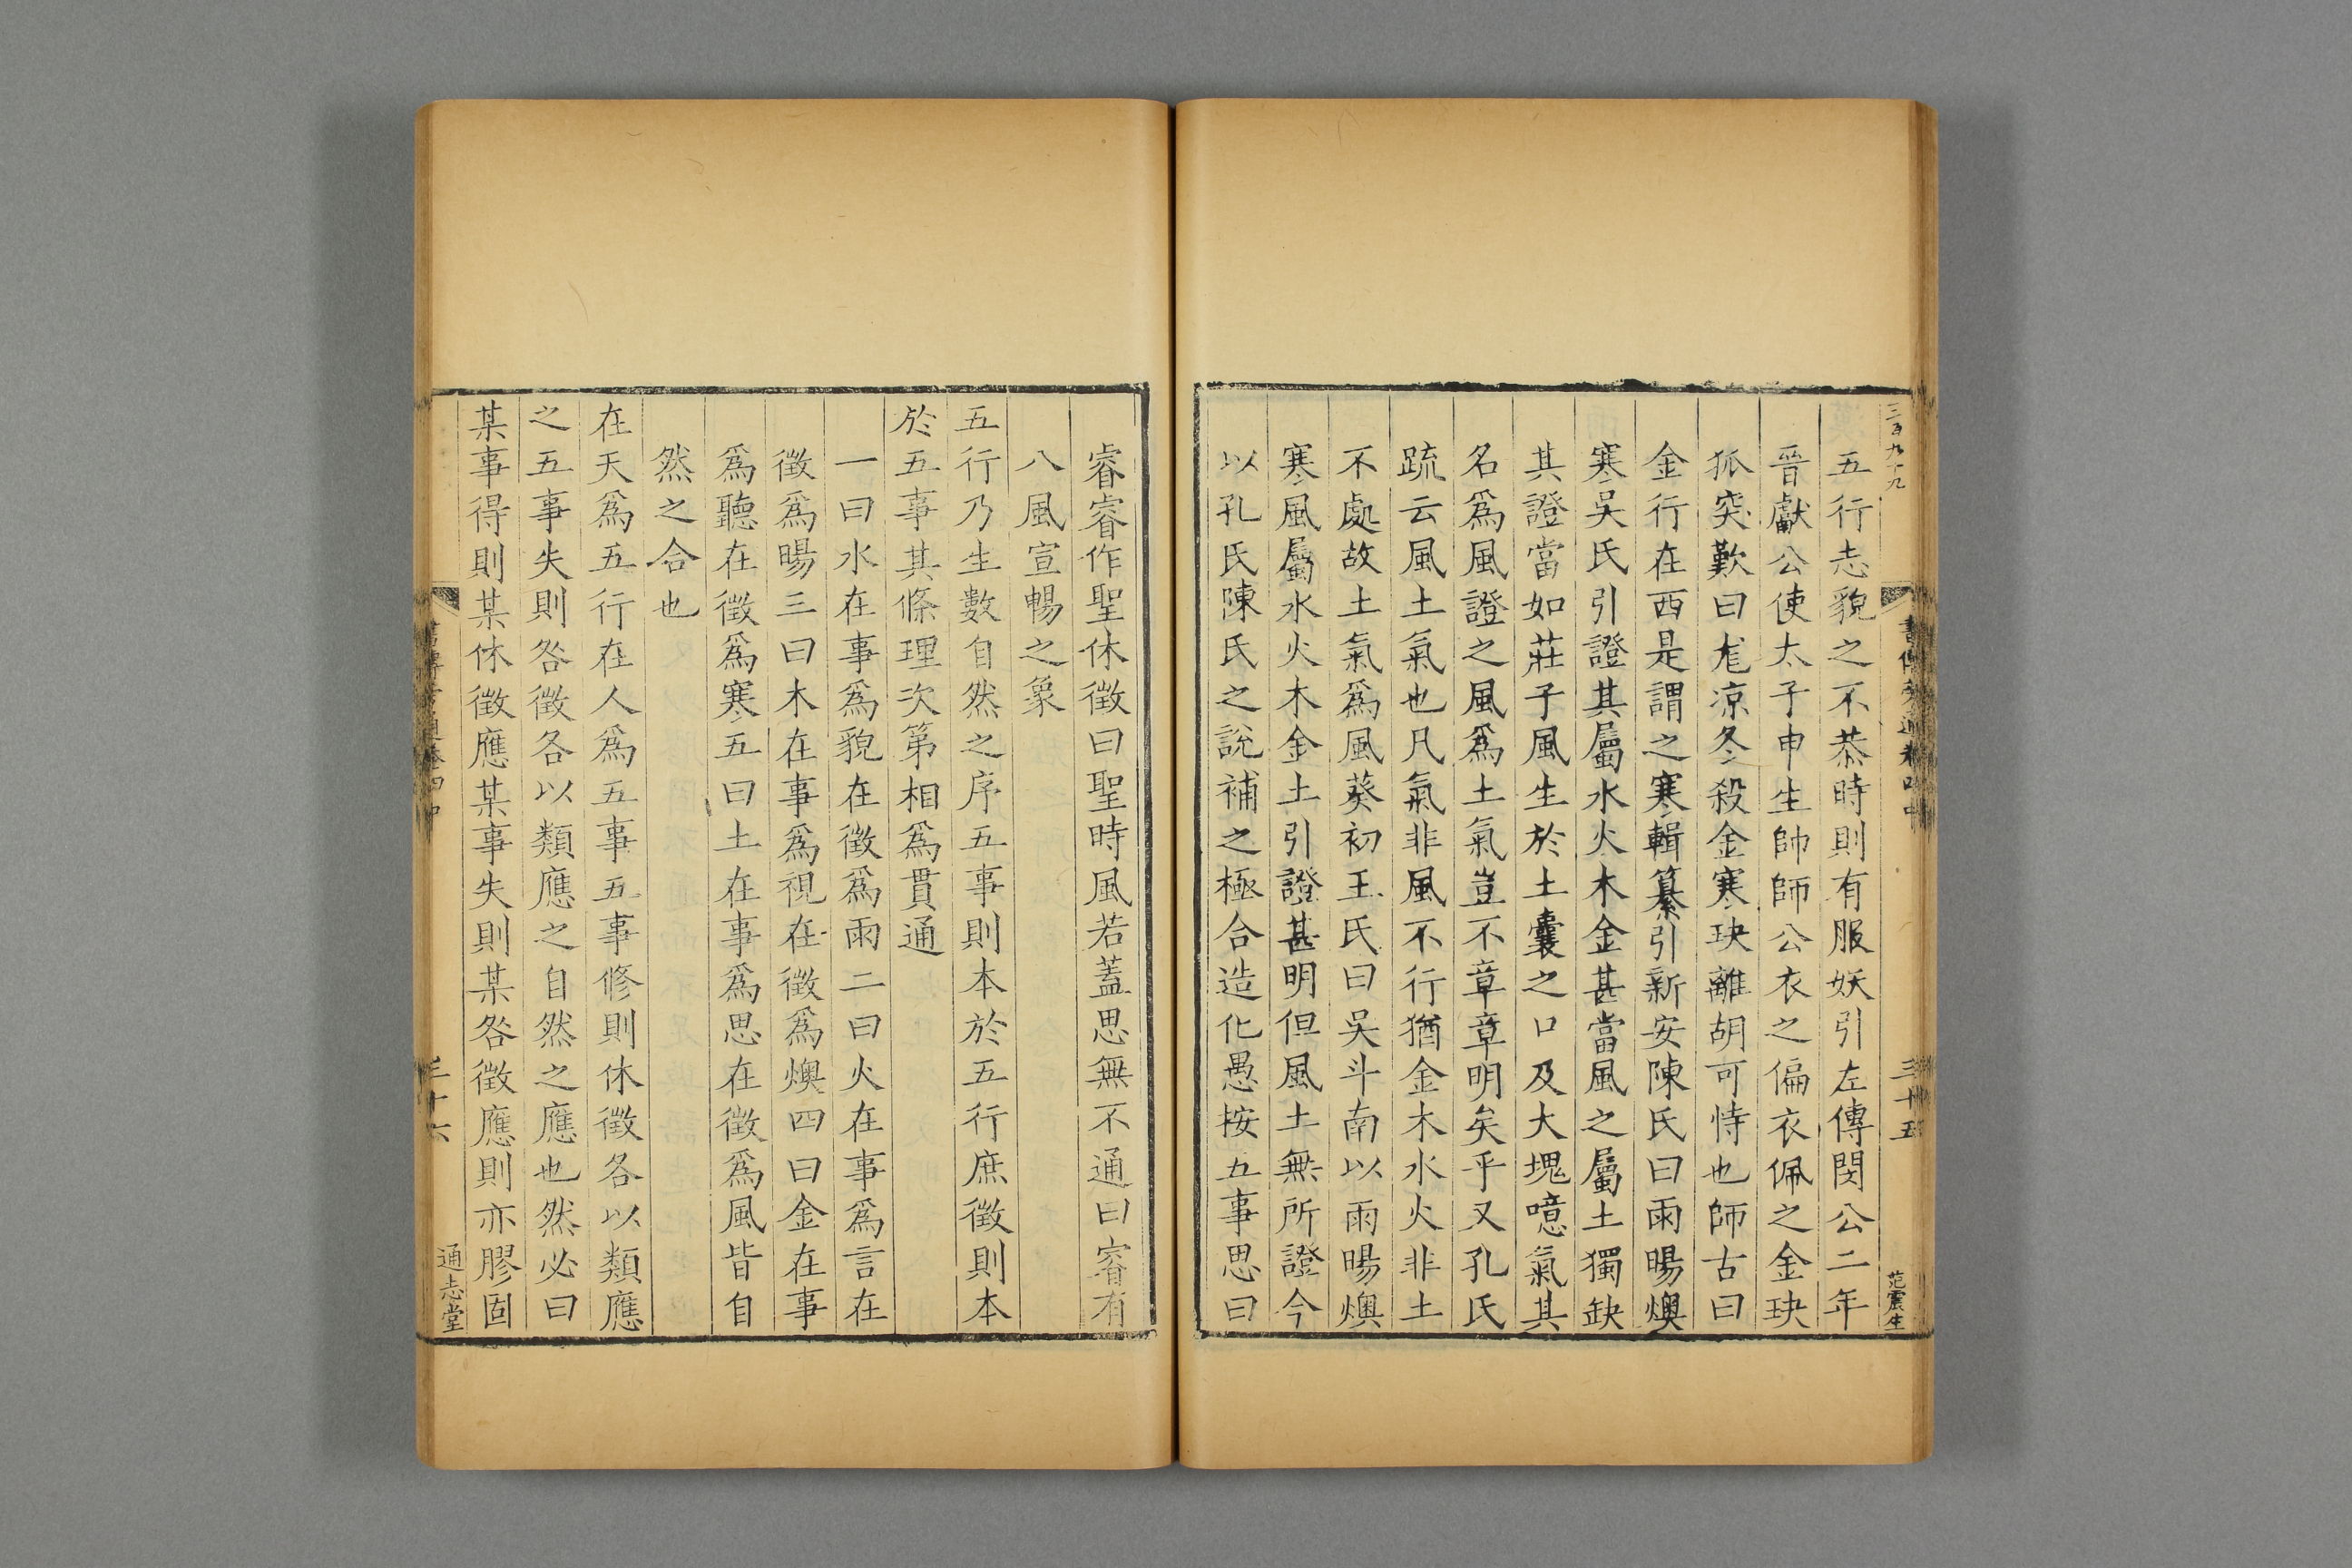 三百九十九
書傳旁通卷四中
三十五
范震生
五行志貌之不恭時則有服妖引左傳閔公二年
晉獻公使太子申生帥師公衣之偏衣佩之金玦
狐突歎曰尨凉冬殺金寒玦離胡可恃也師古曰
金行在西是謂之寒輯纂引新安陳氏曰雨暘燠
寒吳氏引證其屬水火木金甚當風之屬土獨缺
其證當如莊子風生於土囊之口及大塊噫氣其
名爲風證之風爲土氣豈不章章明矣乎又孔氏
䟽云風土氣也凡氣非風不行猶金木水火非土
不處故土氣爲風葵初王氏曰吳斗南以雨暘燠
寒風屬水火木金土引證甚明但風土無所證今
以孔氏陳氏之說補之極合造化愚按五事思曰
睿睿作聖休徵曰聖時風若蓋思無不通曰睿有
八風宣暢之象
五行乃生數自然之序五事則本於五行庶徵則本
於五事其條理次第相爲貫通
一曰水在事爲貌在徵爲雨二曰火在事爲言在
徵爲暘三曰木在事爲視在徵爲燠四曰金在事
爲聽在徵爲寒五曰土在事爲思在徵爲風皆自
然之合也
在天爲五行在人爲五事五事修則休徵各以類應
之五事失則咎徵各以類應之自然之應也然必曰
某事得則某休徵應某事失則某咎徵應則亦膠固
書傳旁通卷四中
三十六
通志堂